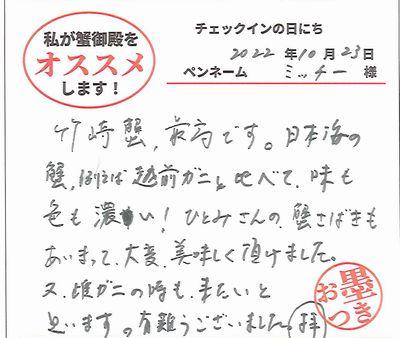 私が蟹御殿を
オススメ
します！
チェックインの日にち
2022 年 10 月 23 日
ペンネーム ミッチー 様
竹崎蟹，最高です。日本海の
蟹，例えば越前ガニと比べて、味も
色も濃い！ひとみさんの蟹さばきも
あいまって、大変、美味しく頂けました。
又、雌ガニの時も、来たいと
思います。有難うございました。拝
お墨つき